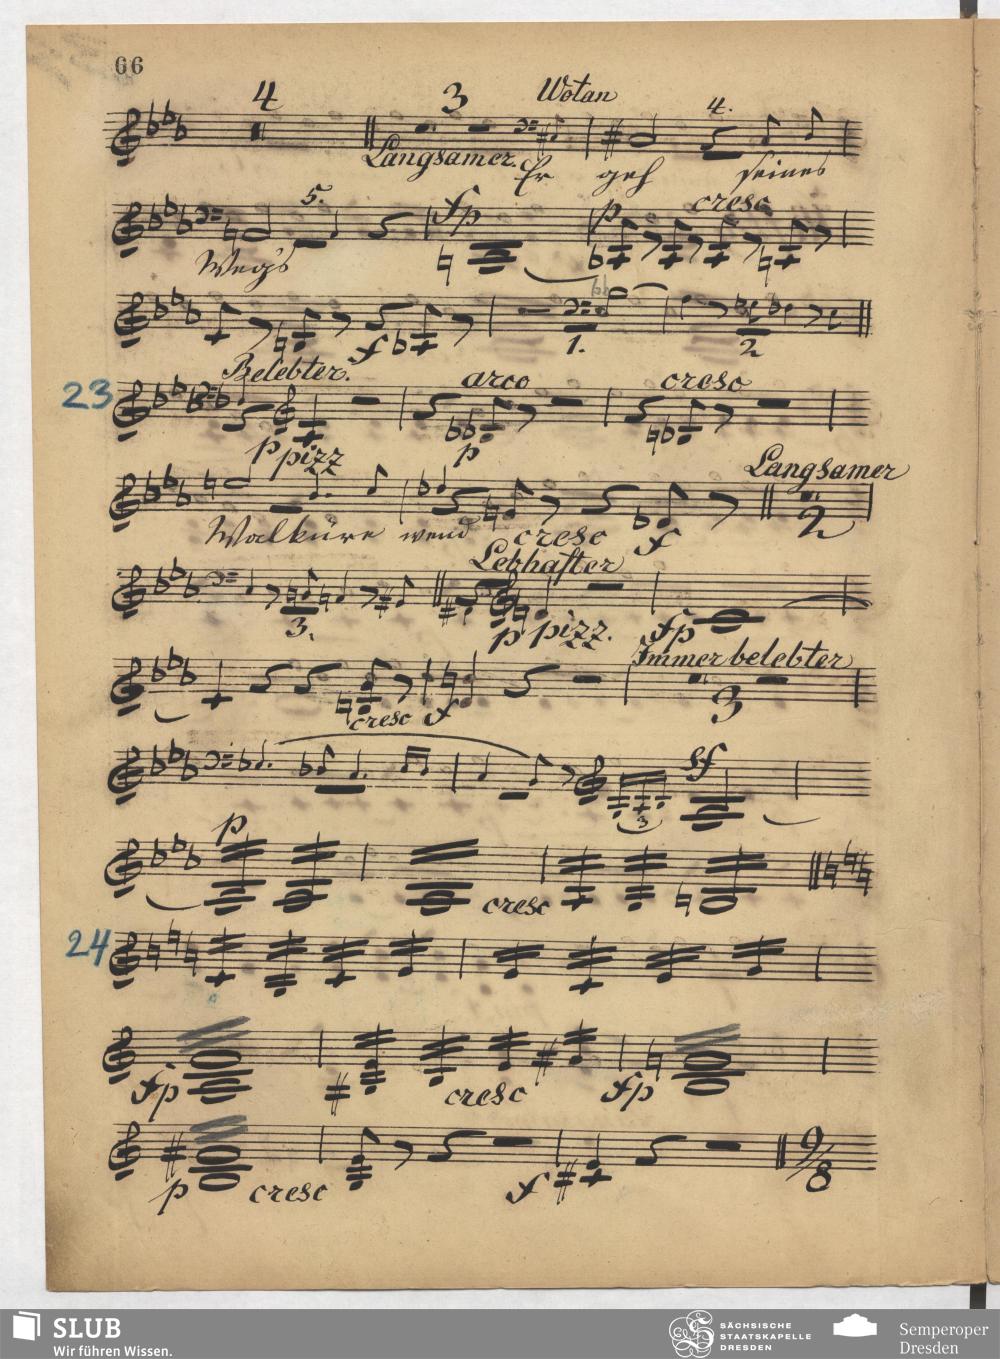 66
4 3 Wotan 4.
Langsamer. Er geh seines
5. fp p cresc
Weg's
f 1. 2
23 Belebter. arco cresc
p pizz p
Langsamer
2
Walküre wend cresc f
Lebhafter
3. p pizz. fp
Immer belebter
cresc f 3
sf
3
p
cresc
24
fp cresc fp
9/8
p cresc f
SLUB
Wir führen Wissen.
SÄCHSISCHE
STAATSKAPELLE
DRESDEN
Semperoper
Dresden